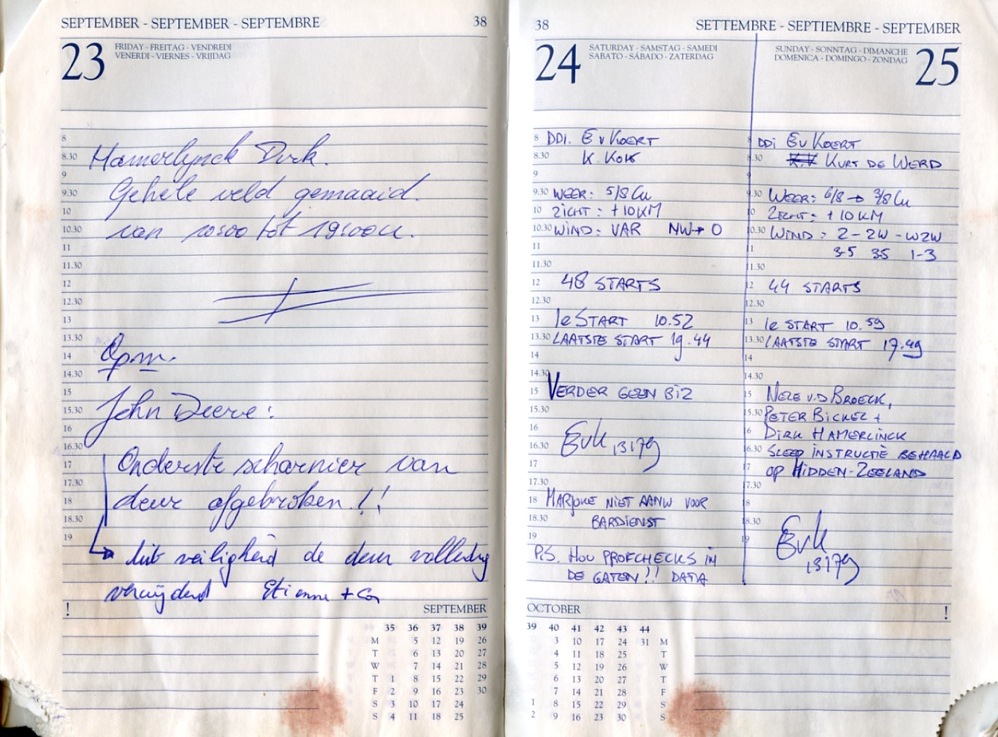 SEPTEMBER - SEPTEMBER - SEPTEMBRE 38
23 FRIDAY - FREITAG - VENDREDI
VENERDI - VIERNES - VRIJDAG
8
8.30 Hamerlynck Dirk.
9
9.30 Gehele veld gemaaid.
10
10.30 van 10u00 tot 19u00u.
11
11.30
12
12.30
13
13.30
14 Opm.
14.30
15
15.30 John Deere:
16
16.30
17 Onderste scharnier van
17.30
18 deur afgebroken!!
18.30
19
uit veiligheid de deur volledig
verwijderd Etienne + Cor
!
SEPTEMBER
35 36 37 38 39
M 5 12 19 26
T 6 13 20 27
W 7 14 21 28
T 1 8 15 22 29
F 2 9 16 23 30
S 3 10 17 24
S 4 11 18 25
38 SETTEMBRE - SEPTIEMBRE - SEPTEMBER
24 SATURDAY - SAMSTAG - SAMEDI
SABATO - SÁBADO - ZATERDAG
8 DDI. E v KOERT
8.30 K. KOK
9
9.30 WEER: 5/8 Cu
10 ZICHT: +10KM
10.30 WIND: VAR NW → O
11
11.30
12 48 STARTS
12.30
13 1e START 10.52
13.30 LAATSTE START 19.44
14
14.30
15 VERDER GEEN BIZ
15.30
16
16.30 EvK 13179
17
17.30
18 MARJOKE NIET AANW VOOR
18.30 BARDIENST
19
P.S. HOU PROFCHECKS IN
DE GATEN!! DATA
SUNDAY - SONNTAG - DIMANCHE
DOMENICA - DOMINGO - ZONDAG 25
DDI E v KOERT
8.30 KURT DE WERD
9
9.30 WEER: 6/8 → 7/8 Cu
10 ZICHT: +10KM
10.30 WIND: Z - ZW - WZW
11 3-5 35 1-3
11.30
12 44 STARTS
12.30
13 1e START 10.59
13.30 LAATSTE START 17.49
14
14.30
15 NELE V.D BROECK,
15.30 PETER BICKEL +
16 DIRK HAMERLINCK
16.30 SLEEP INSTRUCTIE BEHAALD
17 OP MIDDEN-ZEELAND
17.30
18
18.30 EvK
19 13179
!
OCTOBER
39 40 41 42 43 44
3 10 17 24 31 M
4 11 18 25 T
5 12 19 26 W
6 13 20 27 T
7 14 21 28 F
1 8 15 22 29 S
2 9 16 23 30 S